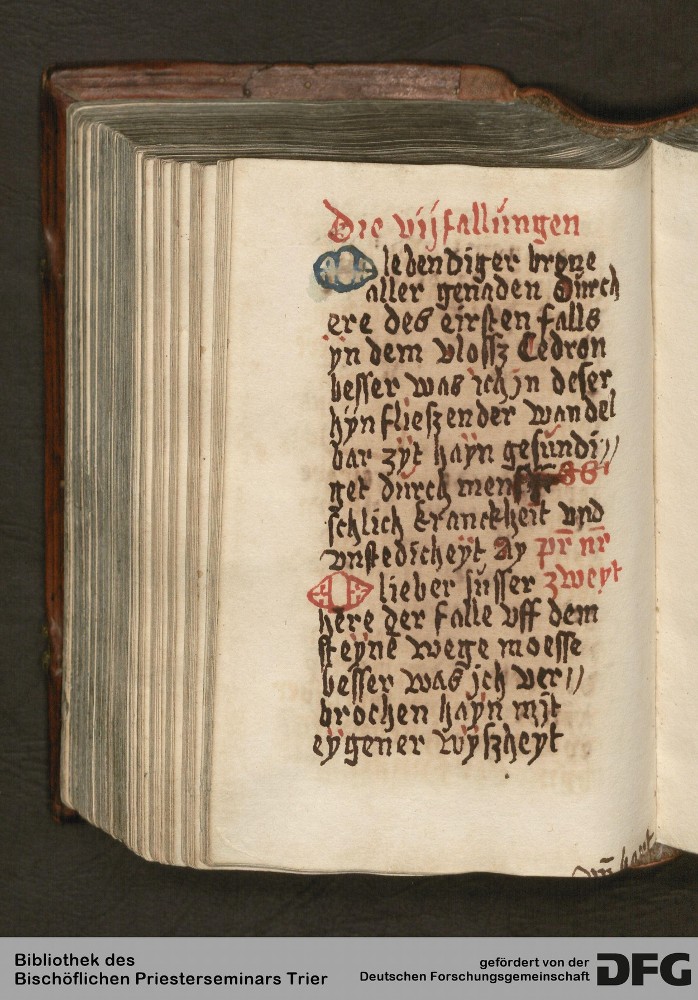 Die vijfallúngen
O lebendiger brone
aller genaden Durch
ere des eirsten falls
ÿn dem vlossz Cedron
besser was ich jn deser
hÿn flieszender wandel
bar zÿt haÿn gesundi//
get durch men
schlich kranckheit vnd
vnstedicheÿt Aÿ pr̄ nr̄
O lieber susser zweyt
here der falle vff dem
steÿne wege moesse
besser was jch ver//
brochen haÿn mjt
eÿgener wÿszheyt
Bibliothek des
Bischöflichen Priesterseminars Trier
gefördert von der
Deutschen Forschungsgemeinschaft
DFG